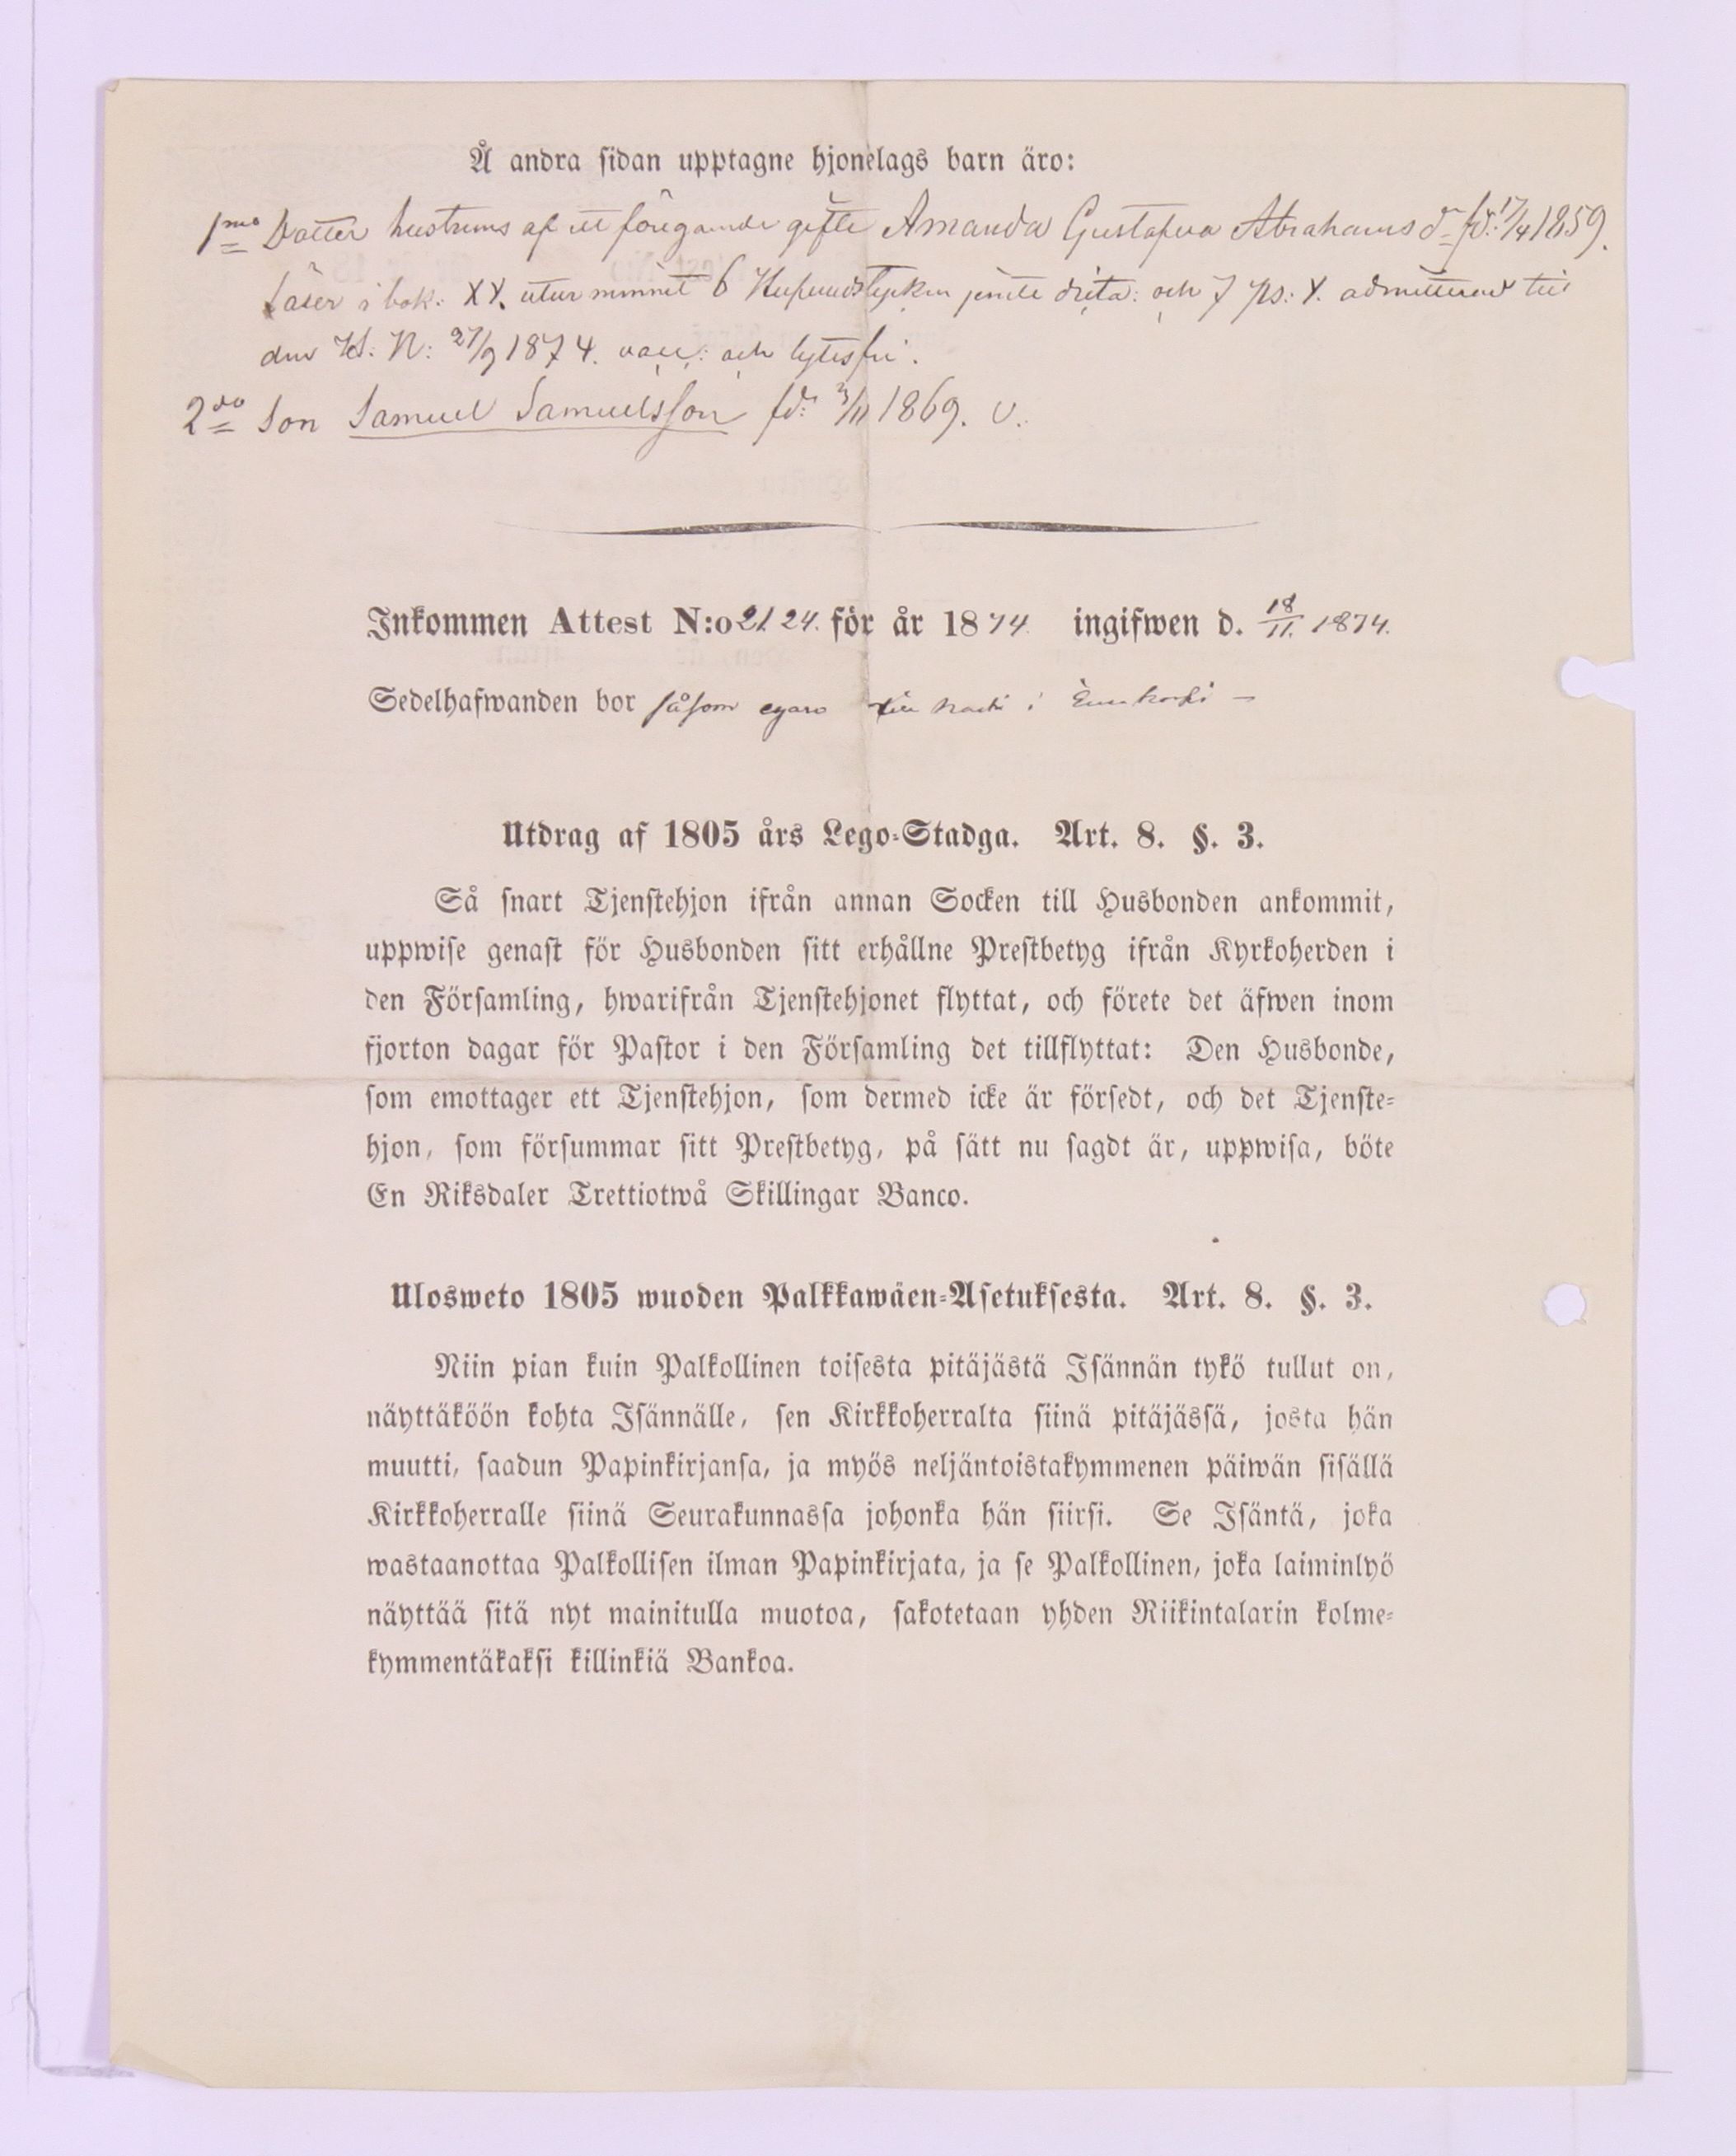 Å andra sidan upptagne hjonelags barn äro:
1mo Dotter hustruns af ett föregående gifte Amanda Gustafva Abrahamsdr fd. 17/4 1859.
Läser i bok: XX. utur minnet 6 Hufvudstycken jemte dito: och 7 ps: X. admitterad till
den H: N: 27/9 1874. vacc: och lytesfri.
2do Son Samuel Samuelsson fd: 3/11 1869. v.
Inkommen Attest N:o 2124. för år 1874 ingifwen d. 18/11. 1874.
Sedelhafwanden bor såsom egare till i
Utdrag af 1805 års Lego-Stadga. Art. 8. §. 3.
Så snart Tjenstehjon ifrån annan Socken till Husbonden ankommit,
uppwise genast för Husbonden sitt erhållne Prestbetyg ifrån Kyrkoherden i
den Församling, hwarifrån Tjenstehjonet flyttat, och förete det äfwen inom
fjorton dagar för Pastor i den Församling det tillflyttat: Den Husbonde,
som emottager ett Tjenstehjon, som dermed icke är försedt, och det Tjenste-
hjon, som försummar sitt Prestbetyg, på sätt nu sagdt är, uppwisa, böte
En Riksdaler Trettiotwå Skillingar Banco.
Ulosweto 1805 wuoden Palkkawäen-Asetuksesta. Art. 8. §. 3.
Niin pian kuin Palkollinen toisesta pitäjästä Isännän tykö tullut on,
näyttäköön kohta Isännälle, sen Kirkkoherralta siinä pitäjässä, josta hän
muutti, saadun Papinkirjansa, ja myös neljäntoistakymmenen päiwän sisällä
Kirkkoherralle siinä Seurakunnassa johonka hän siirsi. Se Isäntä, joka
wastaanottaa Palkollisen ilman Papinkirjata, ja se Palkollinen, joka laiminlyö
näyttää sitä nyt mainitulla muotoa, sakotetaan yhden Riikintalarin kolme-
kymmentäkaksi killinkiä Bankoa.